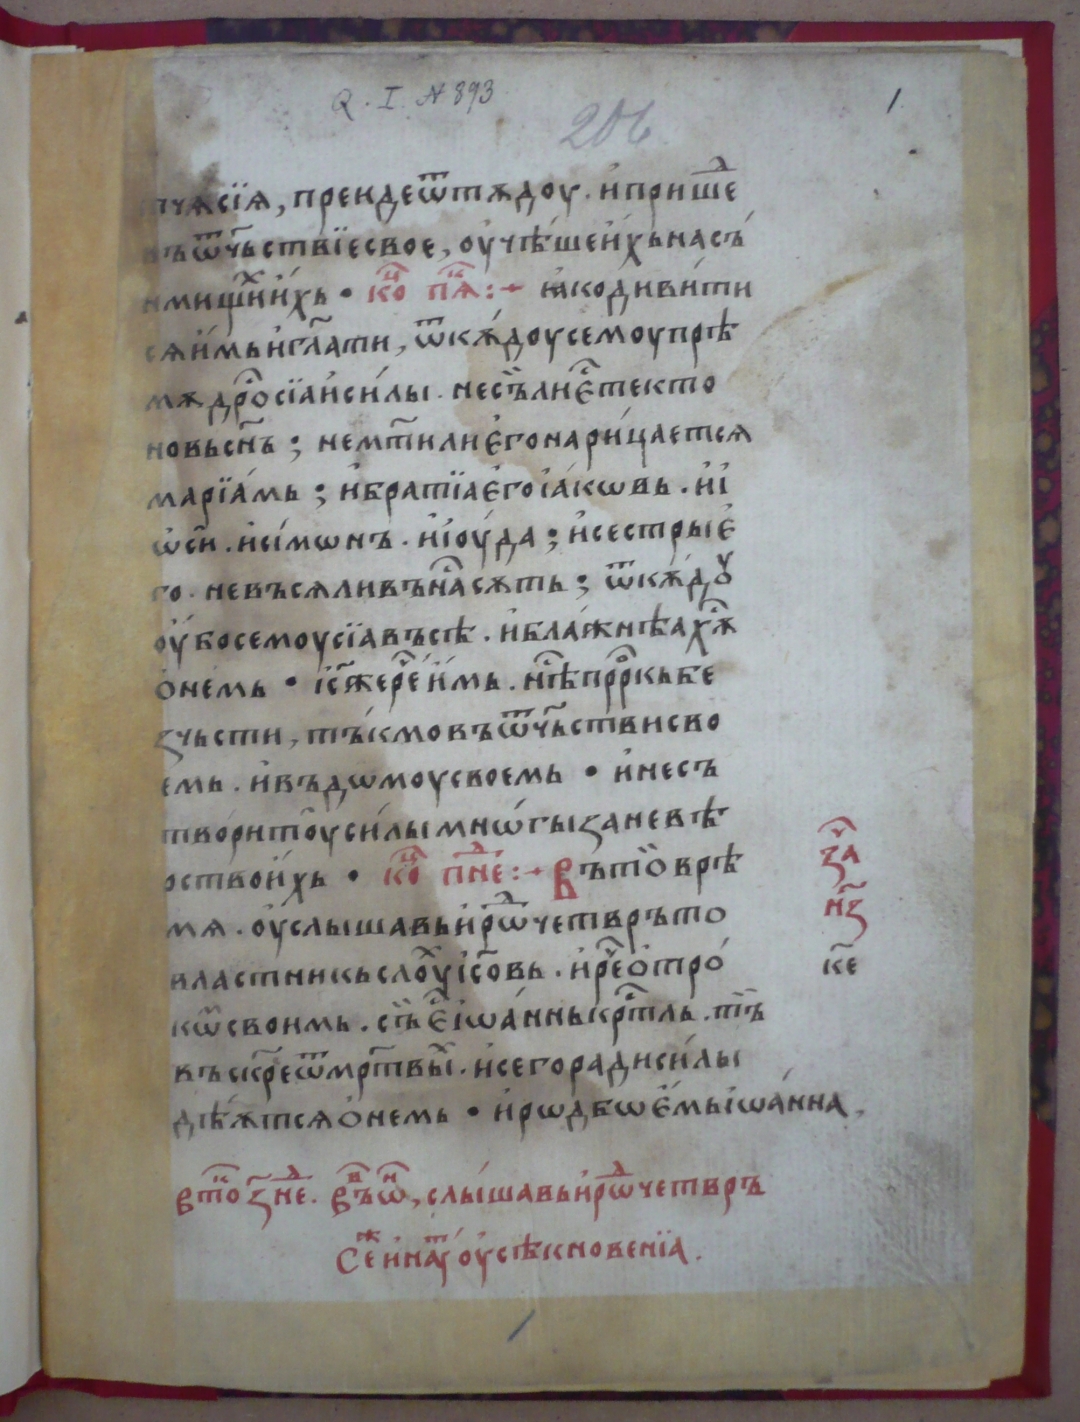 Q. I. N 893
1.
206
пчѧсїѧ, преидеѿтѫдоу. и҆прише́д
въѿч҃ьствїесвое, оу҆чѣ́шеи҆́хьнасъ́
нмищⷯи҆и҆́хь • коⷰ҇ пⷦ҇ѧ:~ ꙗ҆кодиви́ти
сѧи҆́мьи҆гл҃ати, ѿкѫ́доусемоупрѣ
мѫдрⷪ҇сїаи҆си́лы. несъ̏лиє҆ⷭ҇текто
новьсн҃ъ; нем҃тилиє҆гонари́цаетсѧ
марїа́мь; и҆братїаєгоі҆а́кѡвь. и҆і҆
ѡ҆си҃. и҆сі́мѡнъ. и҆і҆оу́да; и҆сестрыє҆
го. невъсѧливън҃асѫть; ѿкѫ́дꙋ
оу҆́босемоусїавъсѣ. и҆блажнѣахⷭ҇ѫ
ѡ҆не́мь • і҆с҃жерⷱ҇еи҆́мь. нⷭ҇ѣпррⷪ҇кьбе
ꙁчьсти, тъ́кмовъѿч҃ьствисво
емь. и҆въдѡмоусвоемь • и҆несъ
твориⷮоуси́лымнѡ́гыꙁаневѣ
рствои҆́хь • коⷰ҇ пⷣне:~ Въто̏врѣ
мѧ. оу҆слышавьи҆рѡⷣчетврьто
властникьслоⷯуі҆с҃овь. и҆рⷱ҇ео҆тро́
кѡⷨсвоимь. съ̏є҆ⷭ҇і҆ѡа́ннькрⷭ҇тль. тъ̏
въскрⷭ҇еѿмрт҃выⷯ. и҆сегорадиси́лы
дѣ́ѫтсѧѡ҆немь • и҆рѡдбѡє҆́мьі҆ѡа́нна,
ꙁаⷱ҇
н҃ꙁ
к҃е
втⷪ҇о ꙁ҃ нⷣе. Въⷡ҇ ѡⷩ҇, слы́шавьи҆рѡⷣчетврь
Сⷤеи҆наⷹоу҆сѣкновенїа.